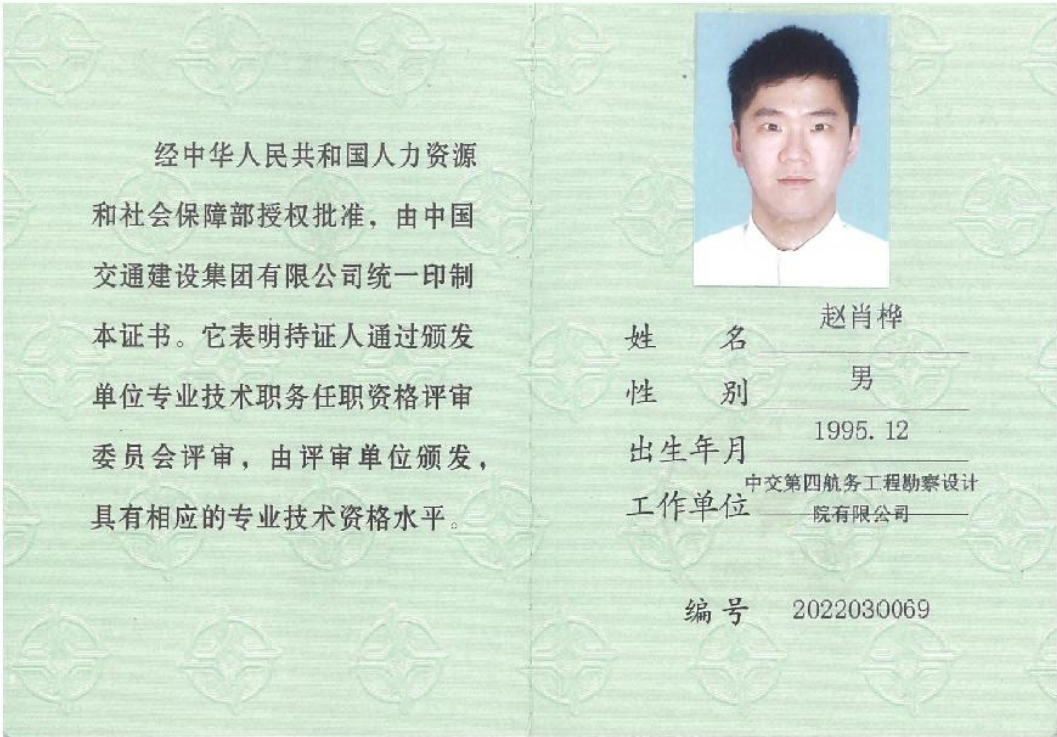 经中华人民共和国人力资源
和社会保障部授权批准，由中国
交通建设集团有限公司统一印制
本证书。它表明持证人通过颁发
单位专业技术职务任职资格评审
委员会评审，由评审单位颁发，
具有相应的专业技术资格水平。
姓 名 赵肖桦
性 别 男
出生年月 1995.12
工作单位 中交第四航务工程勘察设计
院有限公司
编号 2022030069